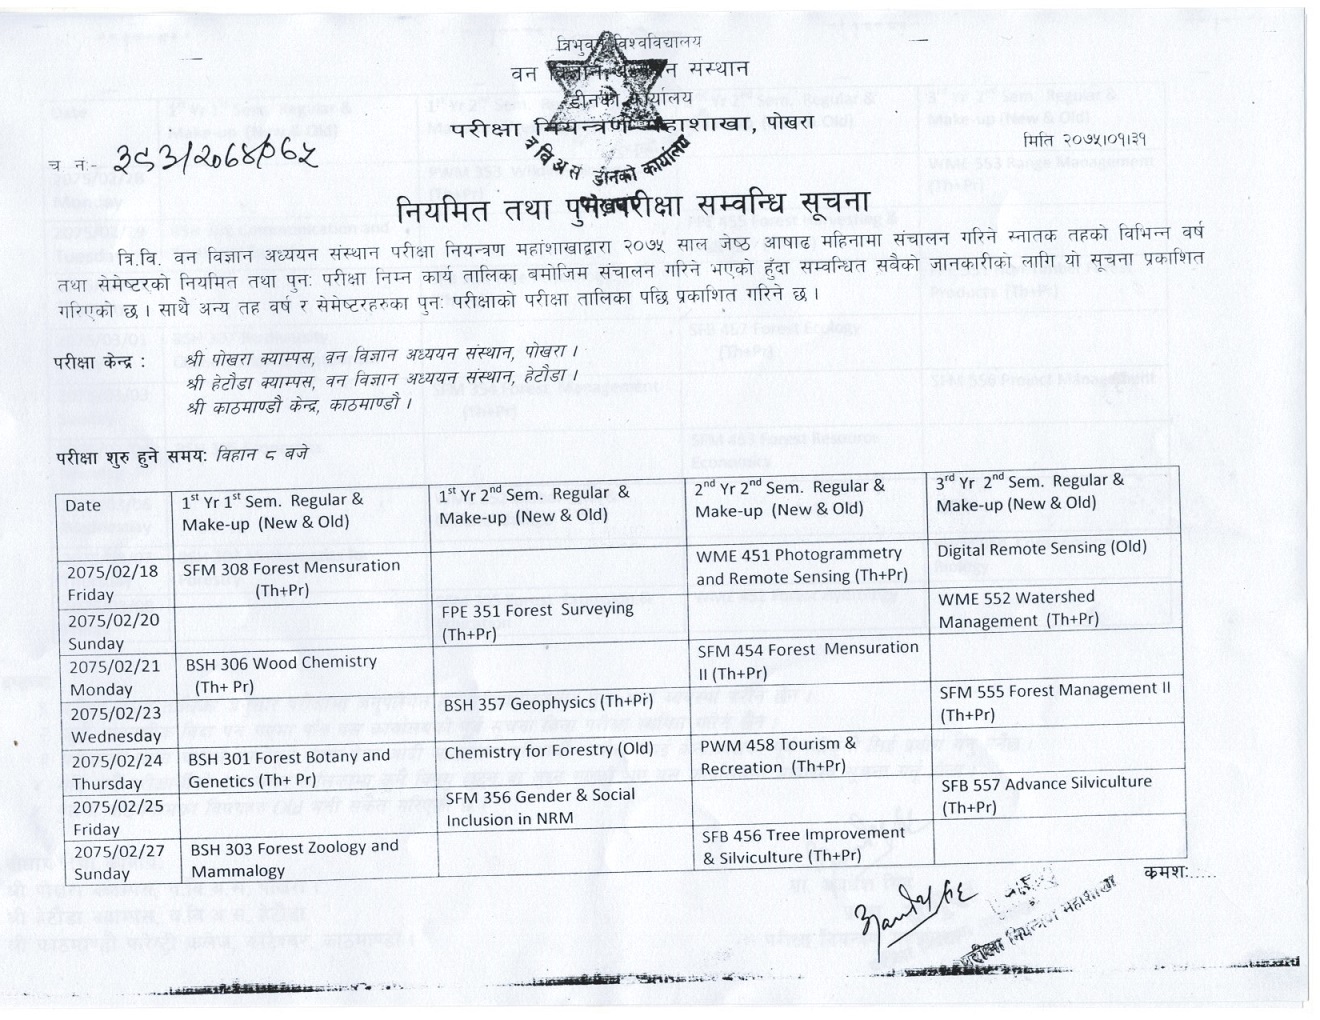 त्रिभुवन विश्वविद्यालय
वन विज्ञान अध्ययन संस्थान
डीनको कार्यालय
परीक्षा नियन्त्रण महाशाखा, पोखरा
मिति २०७५।०१।३१
च नं:-
त्र वि अ स डीनको कार्यालय
नियमित तथा पुनः परीक्षा सम्वन्धि सूचना
त्रि.वि. वन विज्ञान अध्ययन संस्थान परीक्षा नियन्त्रण महांशाखाद्वारा २०७५ साल जेष्ठ आषाढ महिनामा संचालन गरिने स्नातक तहको विभिन्न वर्ष
तथा सेमेष्टरको नियमित तथा पुनः परीक्षा निम्न कार्य तालिका बमोजिम संचालन गरिने भएको हुँदा सम्वन्धित सवैको जानकारीको लागि यो सूचना प्रकाशित
गरिएको छ । साथै अन्य तह वर्ष र सेमेष्टरहरुका पुनः परीक्षाको परीक्षा तालिका पछि प्रकाशित गरिने छ ।
परीक्षा केन्द्र : श्री पोखरा क्याम्पस, वन विज्ञान अध्ययन संस्थान, पोखरा ।
श्री हेटौडा क्याम्पस, वन विज्ञान अध्ययन संस्थान, हेटौडा ।
श्री काठमाण्डौ केन्द्र, काठमाण्डौ ।
परीक्षा शुरु हुने समयः विहान ८ बजे
Date 1st Yr 1st Sem. Regular & Make-up (New & Old) 1st Yr 2nd Sem. Regular & Make-up (New & Old) 2nd Yr 2nd Sem. Regular & Make-up (New & Old) 3rd Yr 2nd Sem. Regular & Make-up (New & Old)
2075/02/18 Friday SFM 308 Forest Mensuration (Th+Pr) WME 451 Photogrammetry and Remote Sensing (Th+Pr) Digital Remote Sensing (Old)
2075/02/20 Sunday FPE 351 Forest Surveying (Th+Pr) WME 552 Watershed Management (Th+Pr)
2075/02/21 Monday BSH 306 Wood Chemistry (Th+ Pr) SFM 454 Forest Mensuration II (Th+Pr)
2075/02/23 Wednesday BSH 357 Geophysics (Th+Pr) SFM 555 Forest Management II (Th+Pr)
2075/02/24 Thursday BSH 301 Forest Botany and Genetics (Th+ Pr) Chemistry for Forestry (Old) PWM 458 Tourism & Recreation (Th+Pr)
2075/02/25 Friday SFM 356 Gender & Social Inclusion in NRM SFB 557 Advance Silviculture (Th+Pr)
2075/02/27 Sunday BSH 303 Forest Zoology and Mammalogy SFB 456 Tree Improvement & Silviculture (Th+Pr)
क्रमशः.....
परीक्षा नियन्त्रण महाशाखा